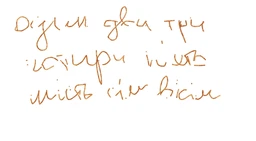 один два три
чотири пять
шість сім вісім